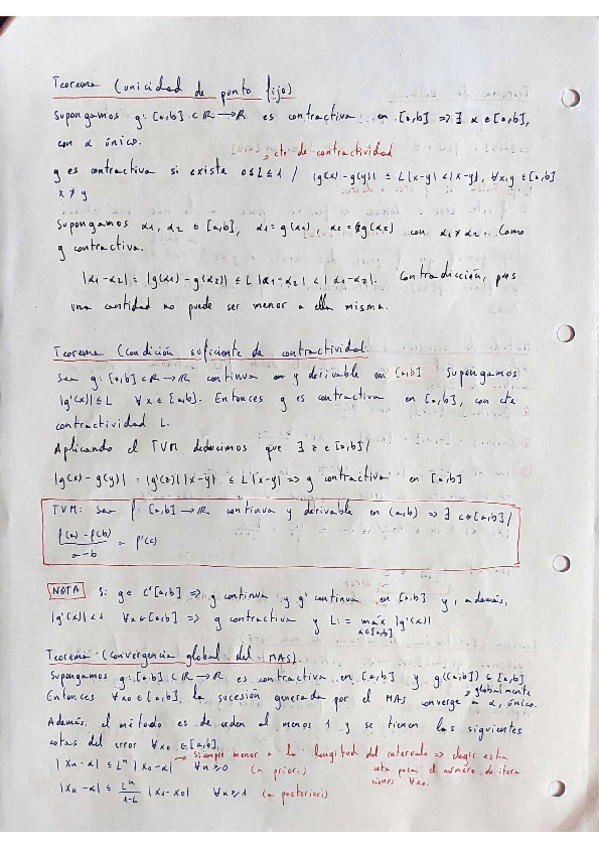 Teorema (unicidad de punto fijo)
Supongamos g: [a,b] ⊂ ℝ → ℝ es contractiva en [a,b] => ∃ α ∈ [a,b],
con α único.
↳ cte de contractividad
g es contractiva si existe 0≤L≤1 / |g(x) - g(y)| ≤ L|x-y| < |x-y|, ∀x,y ∈ [a,b]
x ≠ y
Supongamos α1, α2 ∈ [a,b], α1 = g(α1), α2 = g(α2) con α1 ≠ α2. Como
g contractiva.
|α1-α2| = |g(α1) - g(α2)| ≤ L |α1-α2| < |α1-α2|. Contradicción, pues
una cantidad no puede ser menor a ella misma.
Teorema (Condición suficiente de contractividad.
Sea g: [a,b] ⊂ ℝ → ℝ continua en y derivable en [a,b] Supongamos
|g'(x)| ≤ L ∀x ∈ [a,b]. Entonces g es contractiva en [a,b], con cte
contractividad L.
Aplicando el TVM deducimos que ∃ z ∈ [a,b] /
|g(x) - g(y)| = |g'(z)| |x-y| ≤ L |x-y| => g contractiva en [a,b]
TVM: Sea f: [a,b] → ℝ continua y derivable en (a,b) => ∃ c ∈ [a,b] /
f(a) - f(b) / a-b = f'(c)
NOTA Si g ∈ C'[a,b] => g continua y g' continua en [a,b] y, además,
|g'(x)| < 1 ∀x ∈ [a,b] => g contractiva y L := max |g'(x)|
x∈[a,b]
Teorema (convergencia global del MAS).
Supongamos g: [a,b] ⊂ ℝ → ℝ es contractiva en [a,b] y g([a,b]) ⊂ [a,b]
↳ globalmente
Entonces ∀x0 ∈ [a,b] la sucesión generada por el MAS converge a α, único.
Además, el método es de orden al menos 1 y se tienen las siguientes
cotas del error ∀x0 ∈ [a,b]
→ siempre menor a la longitud del intervalo => elegir esta
|xn - α| ≤ L^n |x0 - α| ∀n ≥ 0 (a priori)
cota para el número de itera
ciones ∀x0.
|xn - α| ≤ L^n / 1-L |x1 - x0| ∀n ≥ 1 (a posteriori)